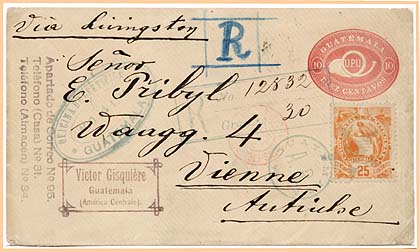 Via Livingston
R
GUATEMALA
10 UPU 10
DIEZ CENTAVOS
Señor
E. Pribyl
Waagg. 4
Vienne
Autriche
No. 12832
30
Apartado de Correo No. 96.
Teléfono (Casa) No. 31.
Teléfono (Almacén) No. 34.
GUATEMALA
Victor Gisquière
Guatemala
(América Centrale).
A
25